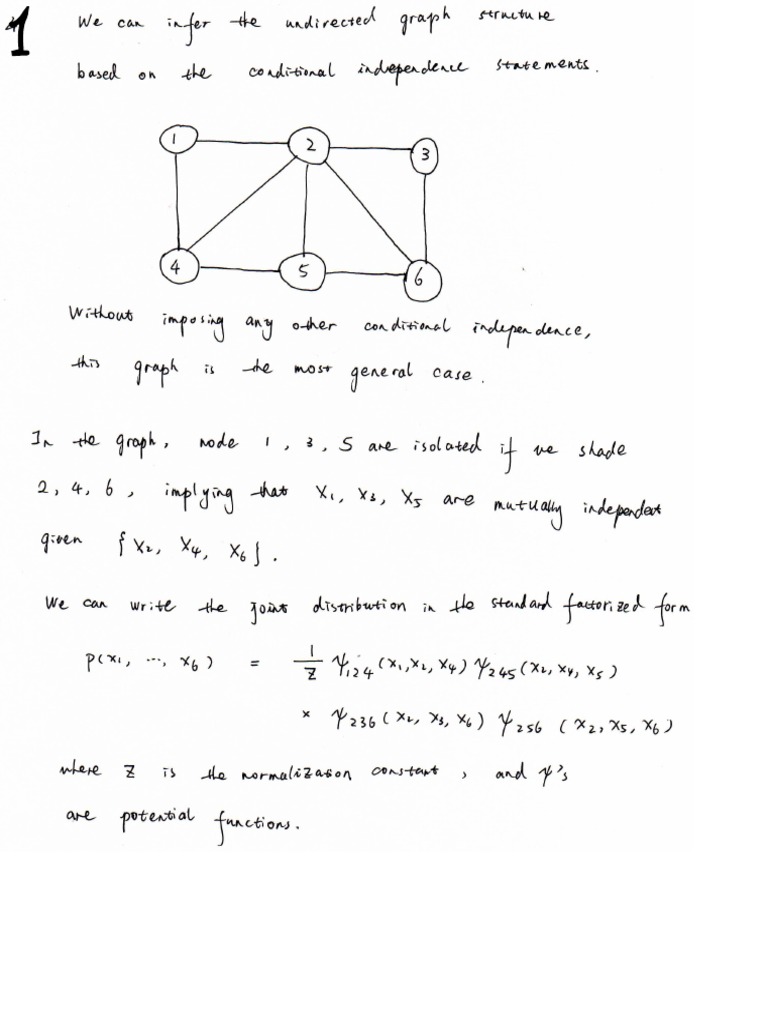 1 We can infer the undirected graph structure
based on the conditional independence statements.
1 2 3
4 5 6
Without imposing any other conditional independence,
this graph is the most general case.
In the graph, node 1, 3, 5 are isolated if we shade
2, 4, 6, implying that X₁, X₃, X₅ are mutually independent
given {X₂, X₄, X₆}.
We can write the joint distribution in the standard factorized form
P(x₁, ..., x₆) = 1/Z ψ₁₂₄(x₁,x₂,x₄) ψ₂₄₅(x₂,x₄,x₅)
× ψ₂₃₆(x₂, x₃, x₆) ψ₂₅₆ (x₂, x₅, x₆)
where Z is the normalization constant, and ψ's
are potential functions.